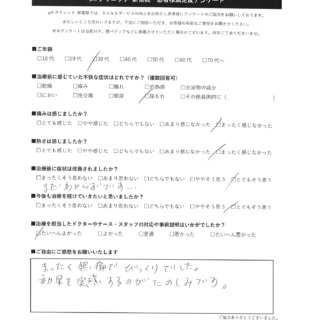 ■ご年齢
□10代 □20代 □30代 □40代 □50代 □60代 □70代〜
■治療前に感じていた不快な症状はどれですか？（複数回答可）
□乾燥 □痛み □腫れ □恐怖感 □分泌物の減少
□におい □性交痛 □頻尿 □尿もれ □その他具体的に（ ）
■痛みは感じましたか？
□とても感じた □やや感じた □どちらでもない □あまり感じなかった □まったく感じなかった
■熱さは感じましたか？
□とても感じた □やや感じた □どちらでもない □あまり感じなかった □まったく感じなかった
■治療後に症状は改善されましたか？
□まったくそう思わない □あまり思わない □どちらでもない □ややそう思う □とてもそう思う
まだわからないです…
■今後も治療を続けていきたいと思いましたか？
□まったくそう思わない □あまり思わない □どちらでもない □ややそう思う □とてもそう思う
■治療を担当したドクターやナース・スタッフの対応や事前説明はいかがでしたか？
□たいへんよかった □よかった □普通 □悪かった □たいへん悪かった
■ご自由にご感想をお願いいたします
まったく無痛でびっくりでした。
効果を実感するのがたのしみです。
ご協力ありがとうございました。